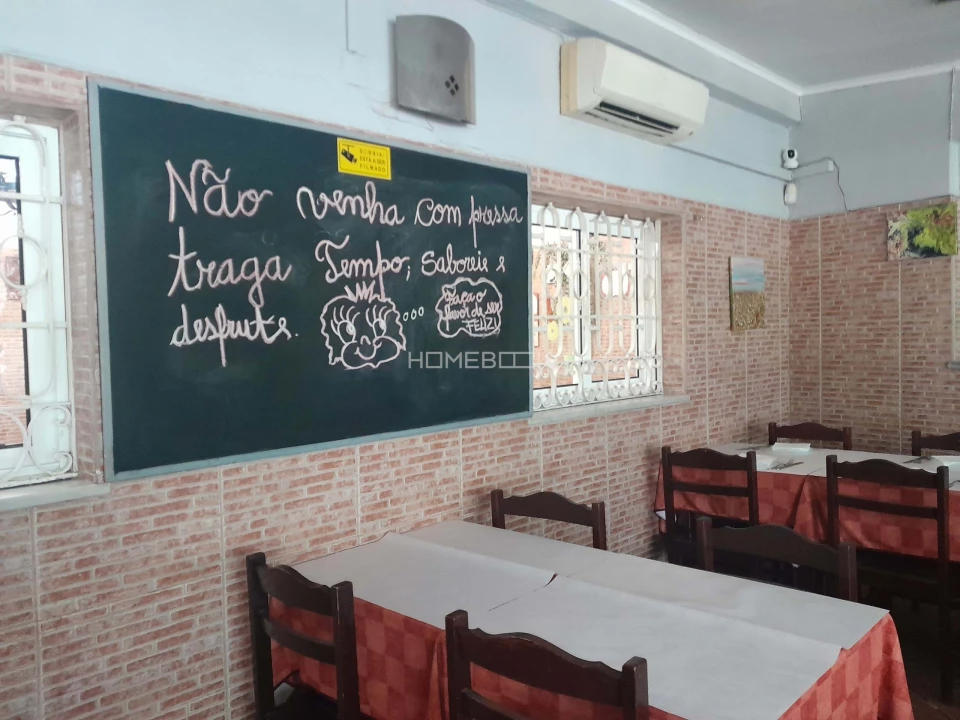 SORRIA!
ESTÁ A SER
FILMADO
Não venha com pressa
traga Tempo, Saboreie e
desfrute.
Faça o
favor de ser
FELIZ!
HOMEBOO